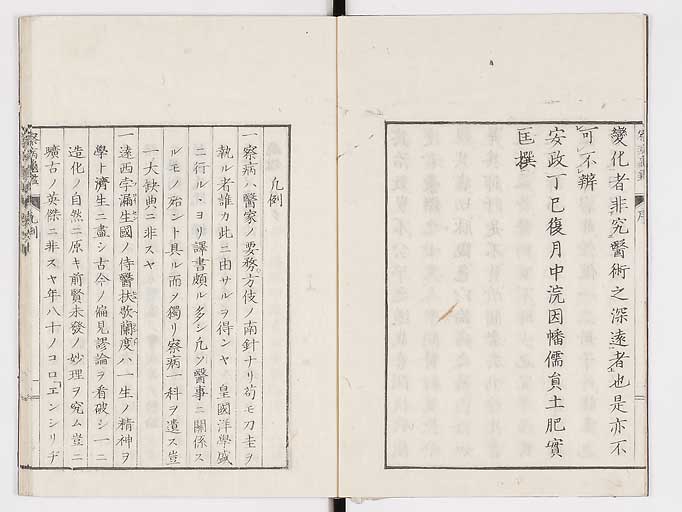 變化者非究醫術之深遠者也是亦不
可不辨
安政丁巳復月中浣因幡儒員土肥實
匡撰
序
凡例
一察病ハ醫家ノ要務方伎ノ南針ナリ苟モ刀圭ヲ
執ル者誰カ此ニ由サルヲ得ンヤ 皇國洋學盛
ニ行ル丶ヨリ譯書頗ル多シ凡ソ醫事ニ關係ス
ルモノ殆ント具ル而ソ獨リ察病一科ヲ遺ス豈
一大缺典ニ非スヤ
一遠西孛漏生國ノ侍醫扶歇蘭度ハ一生ノ精神ヲ
學ト濟生ニ盡シ古今ノ偏見謬論ヲ看破シ一ニ
造化ノ自然ニ原キ前賢未發ノ妙理ヲ究ム豈ニ
曠古ノ英傑ニ非スヤ年八十ノコロ「エンシリヂ
凡例
一